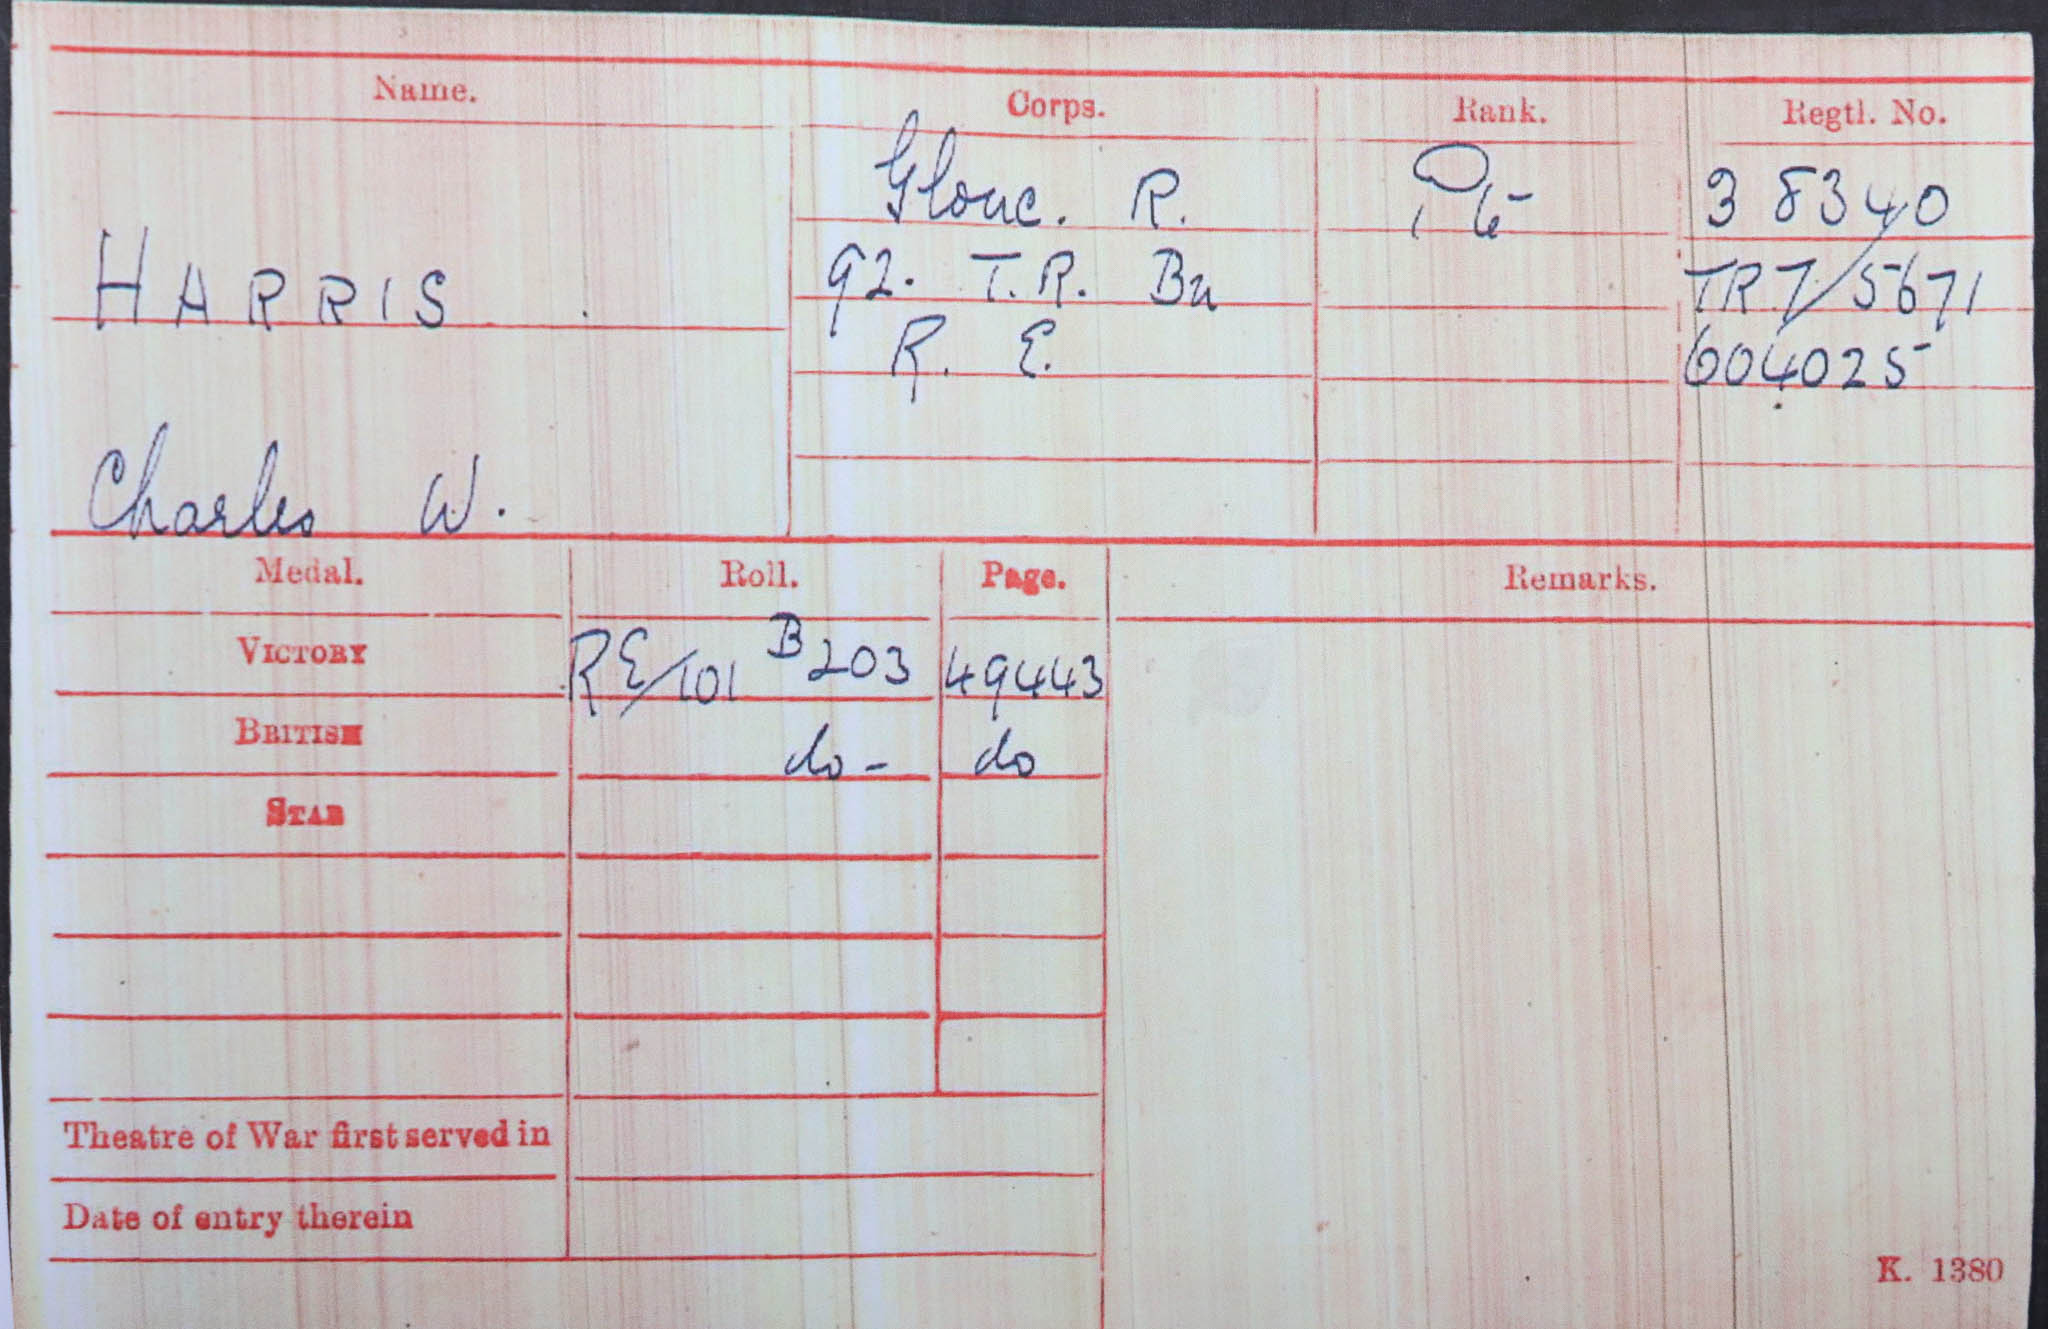 Name. Corps. Rank. Regtl. No.
Glouc. R. Pte 38340
HARRIS 92. T.R. Bn TR7/5671
R. E. 604025
Charles W.
Medal. Roll. Page. Remarks.
VICTORY RE/101 B203 49443
BRITISH do- do
STAR
Theatre of War first served in
Date of entry therein
K. 1380